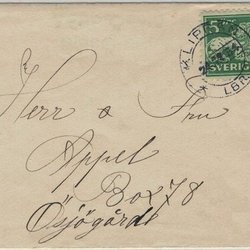 5
SVERIGE
KLIPPAN
LBR
Herr o Fru
Appel
Box 78
Ösjögårdt